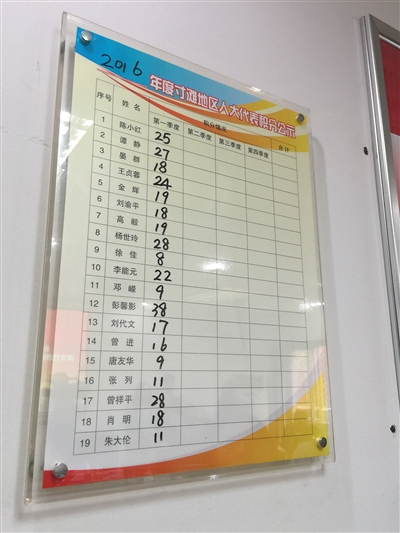 2016 年度寸滩地区人大代表积分公示
序号 姓名 积分情况 合计
第一季度 第二季度 第三季度 第四季度
1 陈小红 25
2 谭静 27
3 晏群 18
4 王贞蓉 24
5 金辉 19
6 刘渝平 18
7 高毅 19
8 杨世玲 28
9 徐佳 8
10 李能元 22
11 邓嵘 9
12 彭馨影 38
13 刘代文 17
14 曾进 16
15 唐友华 9
16 张列 11
17 曾祥平 28
18 肖明 18
19 朱大伦 11